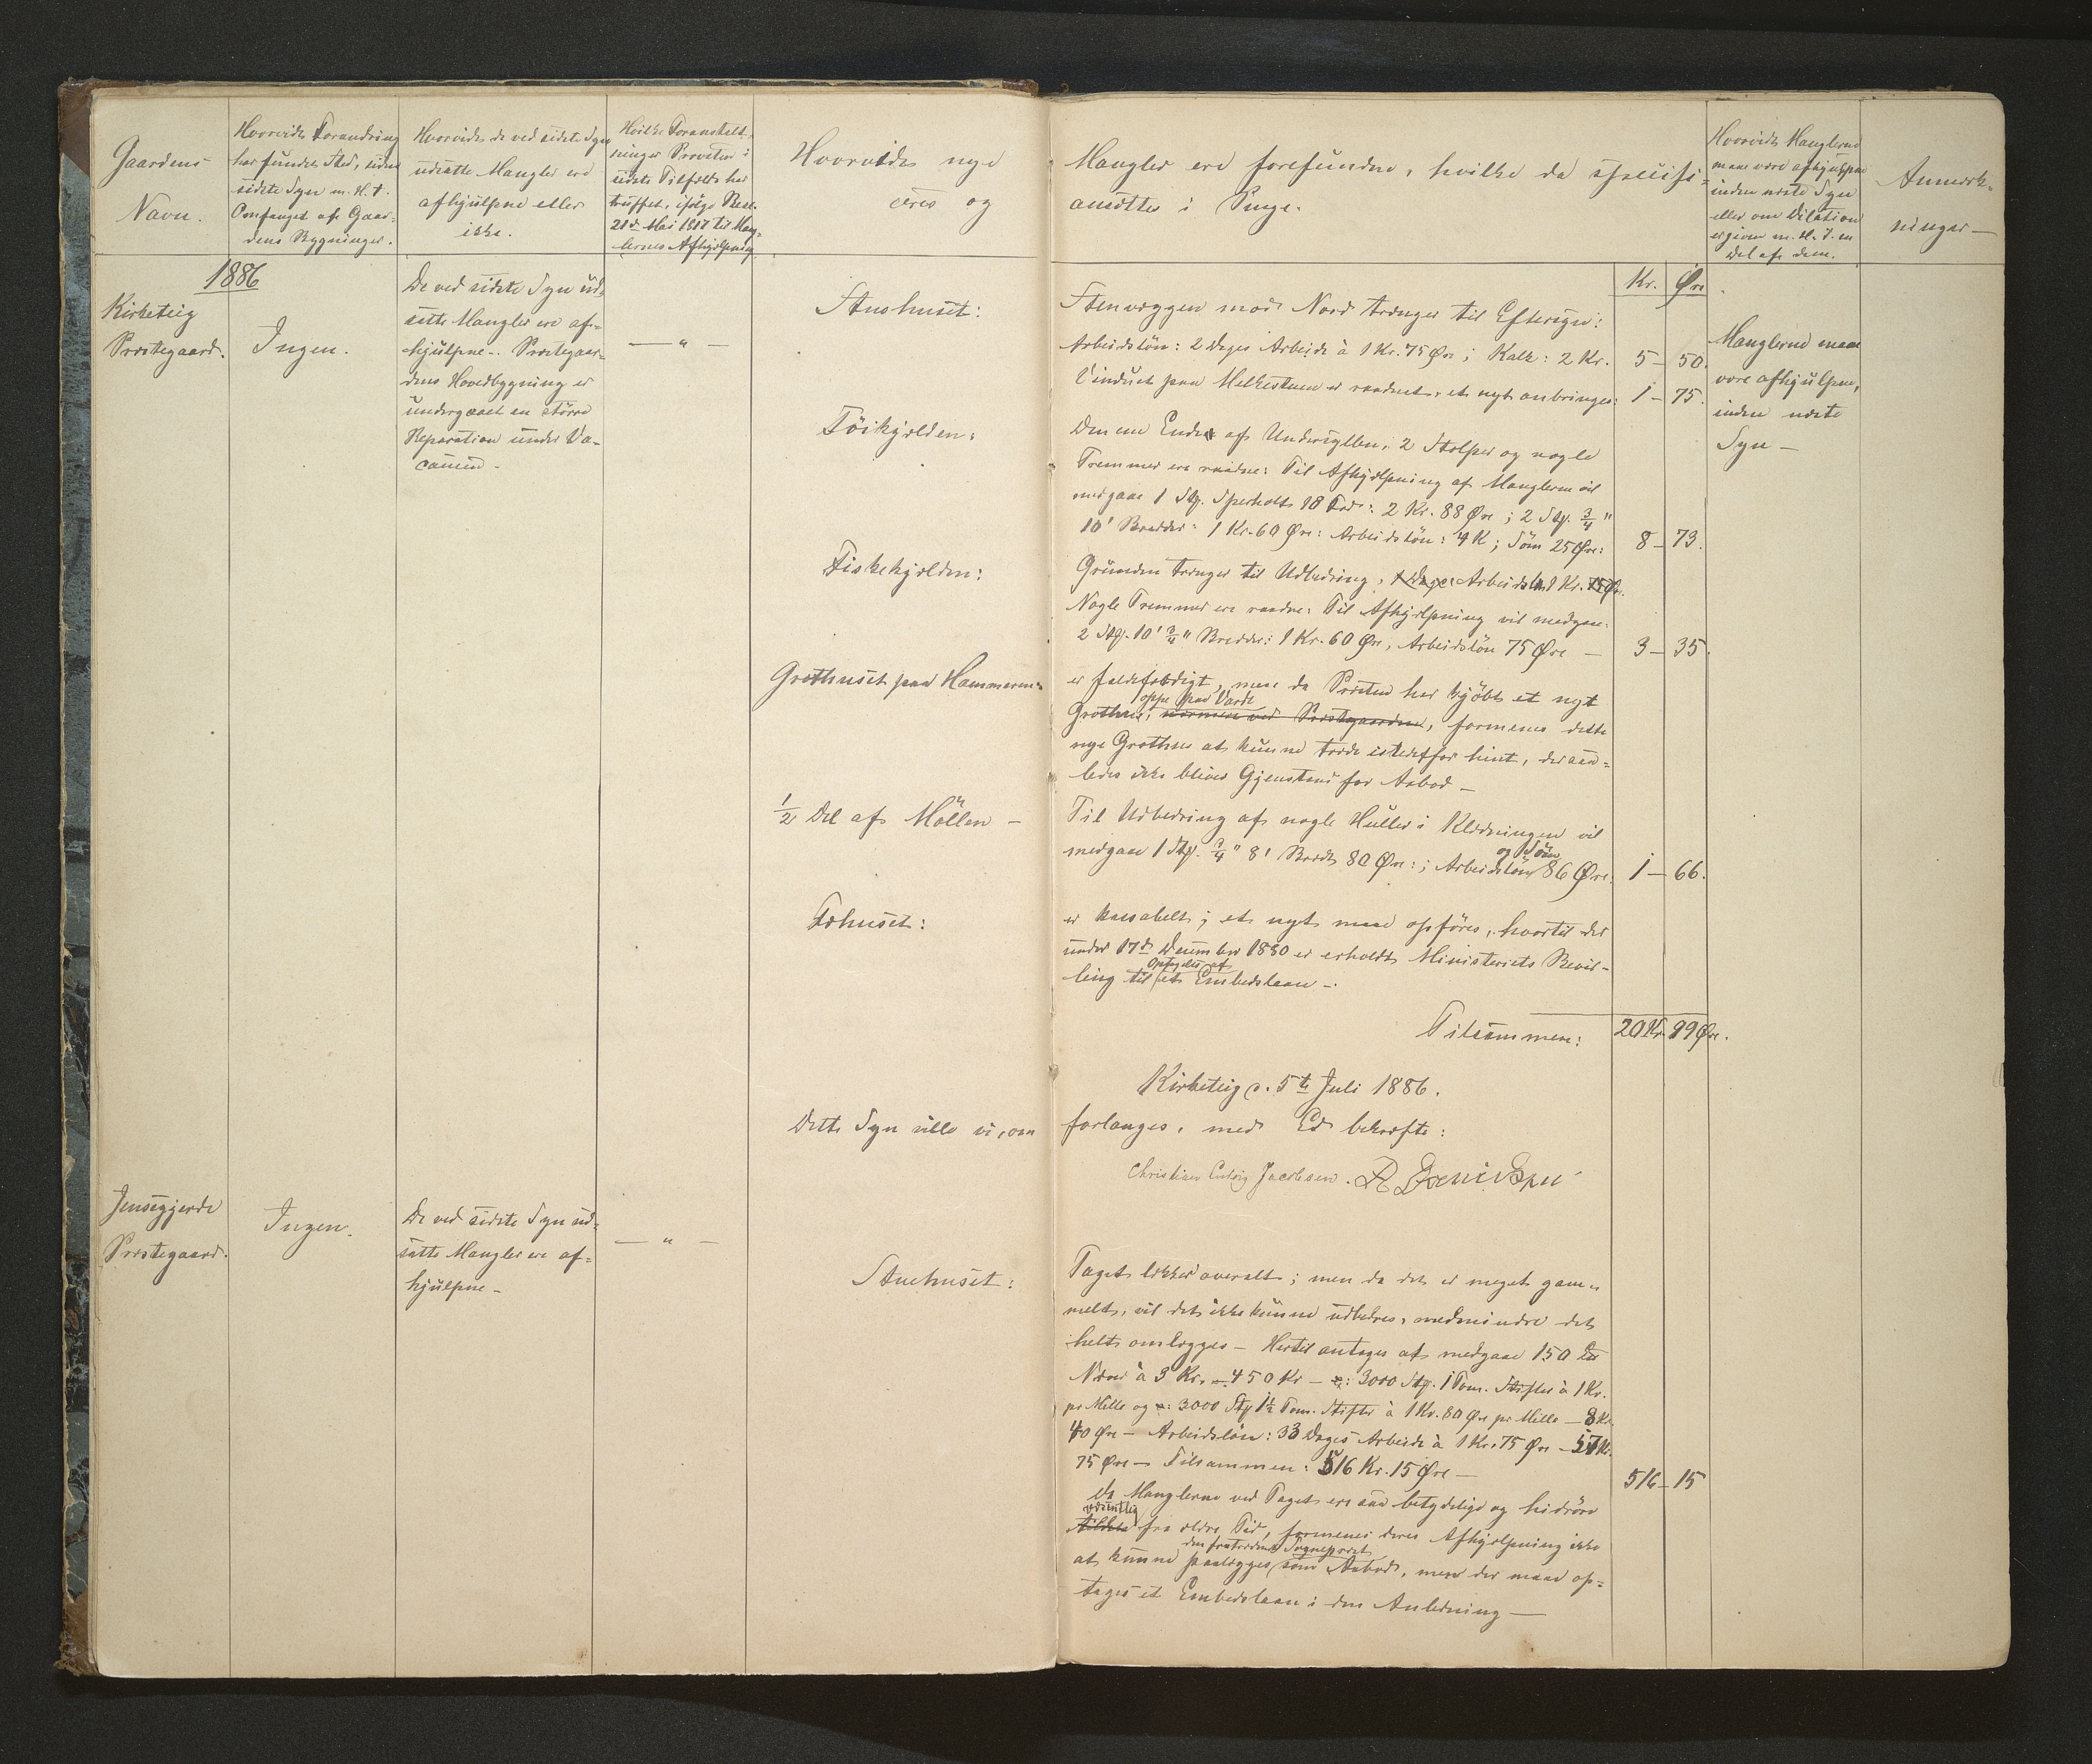 Gaardens
Navn.
Hvorvidt Forandring
har fundet Sted, siden
sidste Syn m. H. t.
Omfanget af Gaar-
dens Bygninger.
Hvorvidt de ved sidste Syn
udsatte Mangler ere
afhjulpne eller
ikke.
Hvilke Foranstalt-
ninger Provsten i
sidste Tilfælde har
truffet, ifølge Resc.
21de Mai 1817 til Mang-
lernes Afhjælpning
Hvorvidt nye
Mangler ere forefundne, hvilke da specifi-
ceres og
ansættes i Penge.
Hvorvidt Manglerne
maa være afhjulpne
inden næste Syn
eller om Dilation
er given m. H. t. en
Del af dem.
Anmærk-
ninger —
Kr. Øre
1886
Kirketeig
Præstegaard.
Ingen.
De ved sidste Syn ud-
satte Mangler ere af-
hjulpne -. Præstegaar-
dens Hovedbygning er
undergaaet en större
Reparation under Va-
cancen -
— " —
Stuehuset:
Stenvæggen mod Nord trænger til Eftersyn:
Arbeidslön: 2 Dages Arbeide à 1 Kr. 75 Øre; Kalk: 2 Kr. 5 — 50.
Vinduet paa Melkestuen er raadnet, et nyt anbringes: 1 — 75.
Töikjælderen:
Den ene Ende af Undersyllen, 2 Stolper og nogle
Tremmer ere raadne: Til Afhjælpning af Manglerne vil
medgaae 1 Stk. Sperholt 18 Fod: 2 Kr. 88 Øre; 2 Stk. 3/4"
10' Bredder: 1 Kr. 60 Øre: Arbeidslön: 4 K; Söm 25 Øre: 8 — 73.
Fiskekjælderen:
Grunden trænger til Udbedring, 1 Dags Arbeidslön 1 Kr. 75 Ør.
Nogle Tremmer ere raadne: Til Afhjælpning vil medgaae:
2 Stk. 10' 3/4" Bredder: 1 Kr. 60 Øre, Arbeidslön 75 Øre — 3 — 35.
Grothuset paa Hammeren:
er faldefærdigt, men da Præsten har kjöbt et nyt
oppe paa Vardt
Grothus, nærmere ved Præstegaarden, formenes dette
nye Grothus at kunne træde istedetfor hint, der saa-
ledes ikke bliver Gjenstand for Aabod —
1/2 Del af Möllen —
Til Udbedring af nogle Huller i Klædningen vil
og Söm
medgaae 1 Stk. 3/4" 8' Bordt 80 Øre:; Arbeidslön 86 Øre. 1 — 66.
Fæhuset:
er kassabelt; et nyt maa opföres, hvortil der
under 17de December 1880 er erholdt Ministeriets Bevil-
Optagelse af
ling til et Embedslaan -.
Tilsammen: 20 Kr. 99 Øre.
Kirketeig d. 5te Juli 1886.
Dette Syn ville vi, om forlanges, med Ed bekræfte:
Christian Ludvig Jacobsen.
Jensegjerde
Præstegaard.
Ingen.
De ved sidste Syn ud-
satte Mangler ere af-
hjulpne -
— " —
Stuehuset:
Taget lækker overalt; men da det er meget gam-
melt, vil det ikke kunne udbedres, medmindre det
helt omlægges - Hertil antages at medgaae 150
Næver à 3 Kr. - 450 Kr - 3000 Stk. 1 Tom. Stifter à 1 Kr.
pr Mille og 3000 Stk 1 1/2 Tom. Stifter à 1 Kr. 80 Øre pr Mille — 8 Kr.
40 Øre — Arbeidslön: 33 Dages Arbeide à 1 Kr. 75 Øre — 57 Kr.
75 Øre — Tilsammen: 516 Kr. 15 Øre — 516 — 15
Da Manglerne ved Taget ere saa betydelige og hidröre
væsentlig
fra ældre Tid, formenes deres Afhjælpning ikke
den fratrædende Sognepræst
at kunne paalægges som Aabod, men der maa op-
tages et Embedslaan i den Anledning —
Manglerne maa
være afhjulpne,
inden næste
Syn —